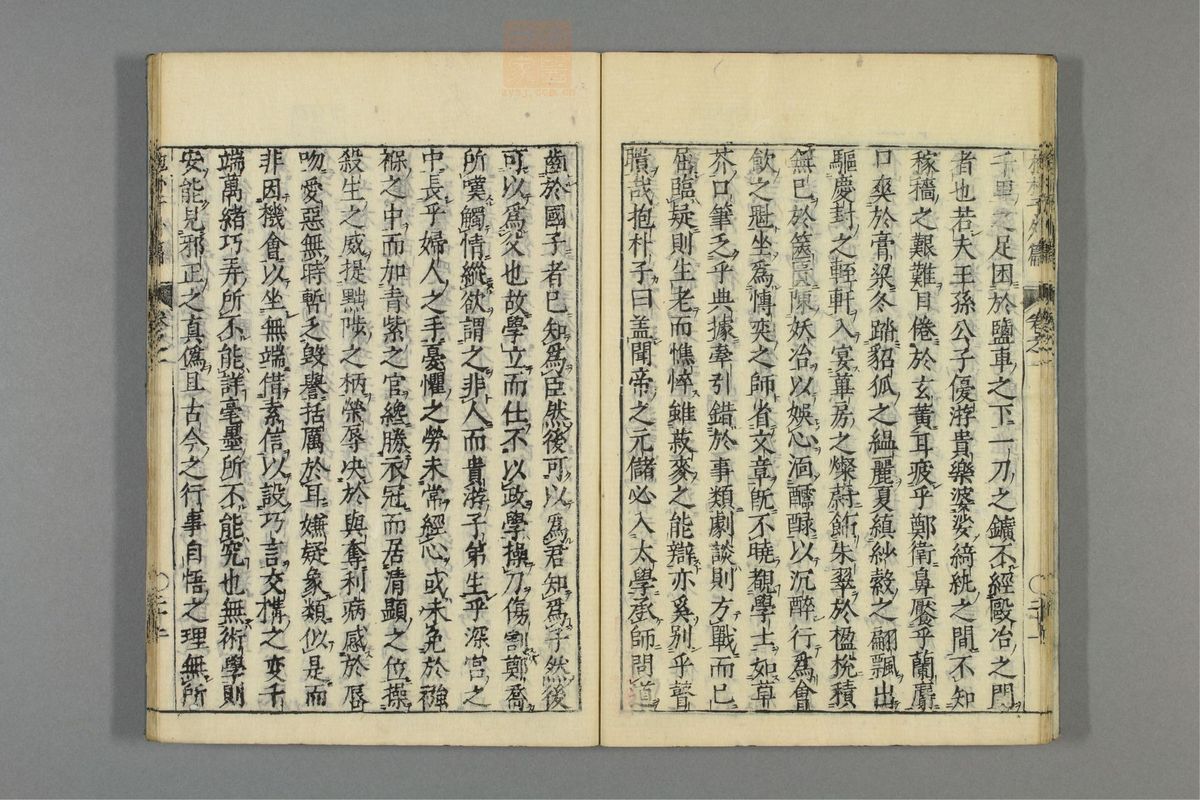 千里之足困於鹽車之下一刃之鑛不經毆冶之門
者也若夫王孫公子優游貴樂婆娑綺紈之間不知
稼穡之艱難目倦於玄黃耳疲乎鄭衛鼻饜乎蘭麝
口爽於膏粱冬踏貂狐之縕麗夏縝紗縠之翩飄出
驅慶封之輕軒入宴華房之燦蔚飾朱翠於楹梲積
無已於篋匱陳妖冶以娛心湎醹醁以沉醉行爲會
飲之魁坐爲愽奕之師省文章旣不曉覩學士如草
芥口筆乏乎典據牽引錯於事類劇談則方戰而已
屈臨疑則生老而憔悴雖菽麥之能辯亦奚别乎瞽
聵哉抱朴子曰盖聞帝之元儲必入太學承師問道
齒於國子者已知爲臣然後可以爲君知爲子然後
可以爲父也故學立而仕不以政學操刀傷割鄭喬
所嘆觸情縱欲謂之非人而貴游子弟生乎深宮之
中長乎婦人之手憂懼之勞未常經心或未免於襁
褓之中而加青紫之官纔勝衣冠而居清顯之位操
殺生之威提黜陟之柄榮辱决於與奪利病感於唇
吻愛惡無時暫乏毀譽括厲於耳嫌疑象類似是而
非因機會以坐無端借素信以設巧言交構之变千
端萬緒巧弄所不能詳毫墨所不能究也無術學則
安能見邪正之真僞且古今之行事自悟之理無所